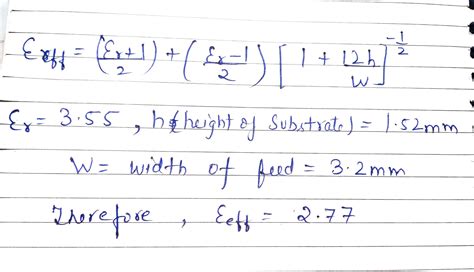 εreff = (εr+1)/2 + (εr-1)/2 [1 + 12h/W]^-1/2
εr = 3.55 , h (height of substrate) = 1.52mm
W = width of feed = 3.2mm
Therefore , εeff = 2.77